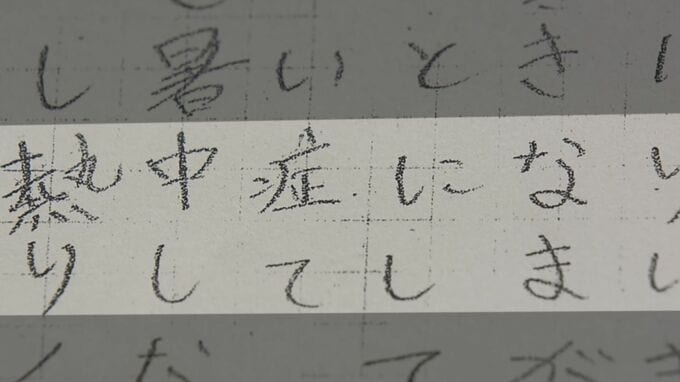 し暑いときに
熱中症になり
りしてしまい
なてがき